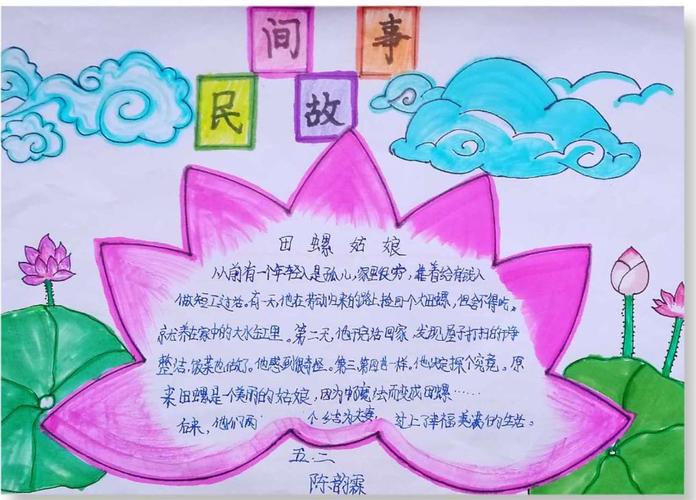 民间故事
田螺姑娘
从前有一个年轻人是孤儿,家里很穷,靠着给有钱人
做短工过活。有一天,他在劳动归来的路上捡回个大田螺,但舍不得吃,
就养在家中的大水缸里。第二天,他干完活回家,发现屋子打扫的干净
整洁,饭菜也做了。他感到很奇怪。第三、第四天一样。他决定探个究竟。原
来田螺是一个美丽的姑娘,因为中魔法而变成田螺……
后来,他们两个结为夫妻 过上了幸福美满的生活。
五.二
陈韵霖